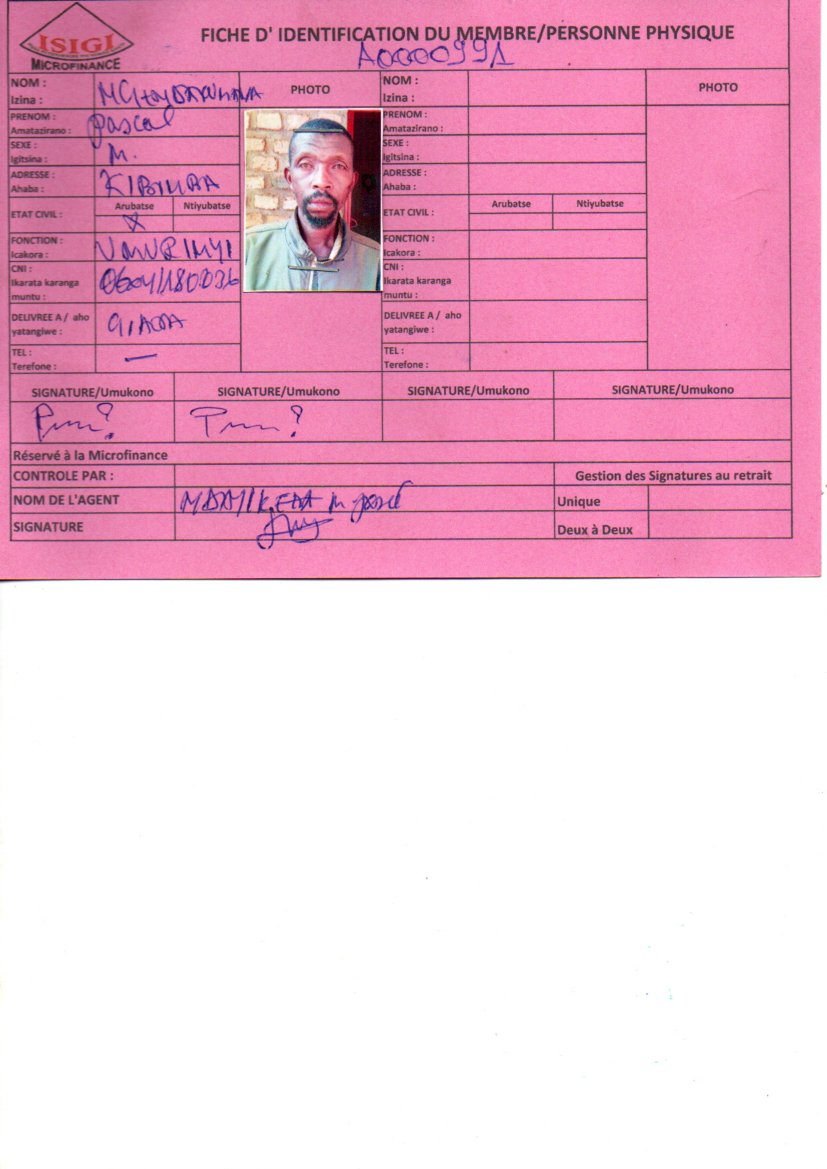 ISIGI
MICROFINANCE
FICHE D' IDENTIFICATION DU MEMBRE/PERSONNE PHYSIQUE
A0000991
NOM :
Izina :
PHOTO
NOM :
Izina :
PHOTO
PRENOM :
Amatazirano :
Pascal
PRENOM :
Amatazirano :
SEXE :
Igitsina :
M.
SEXE :
Igitsina :
ADRESSE :
Ahaba :
KIBIMBA
ADRESSE :
Ahaba :
ETAT CIVIL :
Arubatse
Ntiyubatse
X
ETAT CIVIL :
Arubatse
Ntiyubatse
FONCTION :
Icakora :
UMURIMYI
FONCTION :
Icakora :
CNI :
Ikarata karanga
muntu :
0604/180.036
CNI :
Ikarata karanga
muntu :
DELIVREE A / aho
yatangiwe :
DELIVREE A / aho
yatangiwe :
TEL :
Terefone :
—
TEL :
Terefone :
SIGNATURE/Umukono
SIGNATURE/Umukono
SIGNATURE/Umukono
SIGNATURE/Umukono
Réservé à la Microfinance
CONTROLE PAR :
Gestion des Signatures au retrait
NOM DE L'AGENT
Unique
SIGNATURE
Deux à Deux